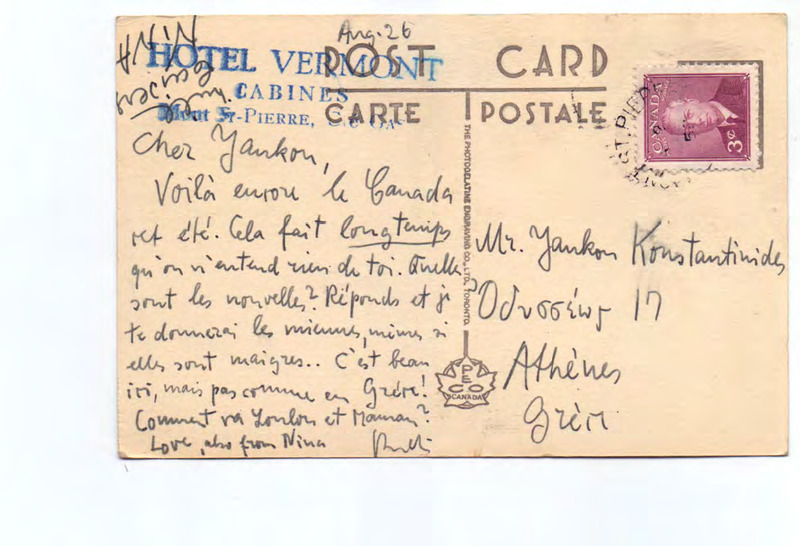 Aug. 26
HOTEL VERMONT
CABINES
Mont St-PIERRE,
NINA
POST CARD
CARTE POSTALE
CANADA
3¢
ST. PIER
THE PHOTOGELATINE ENGRAVING CO., LTD. TORONTO.
PECO
CANADA
Cher Yankou,
Voilà encore le Canada
cet été. Cela fait longtemps
qu'on n'entend rien de toi. Quelles
sont les nouvelles? Réponds et je
te donnerai les miennes, mêmes si
elles sont maigres.. C'est beau
ici, mais pas comme en Grèce!
Comment va Loulou et Maman?
Love, also from Nina
Mr. Yankou Konstantinides
Ὀδυσσέως 17
Athènes
Grèce